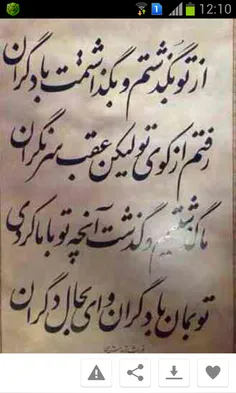 12:10
از تو بگذشتم و بگذاشتمت با دگران
رفتم از کوی تو لیکن عقب سر نگران
ما گذشتیم و گذشت آنچه تو با ما کردی
تو بمان با دگران وای بحال دگران